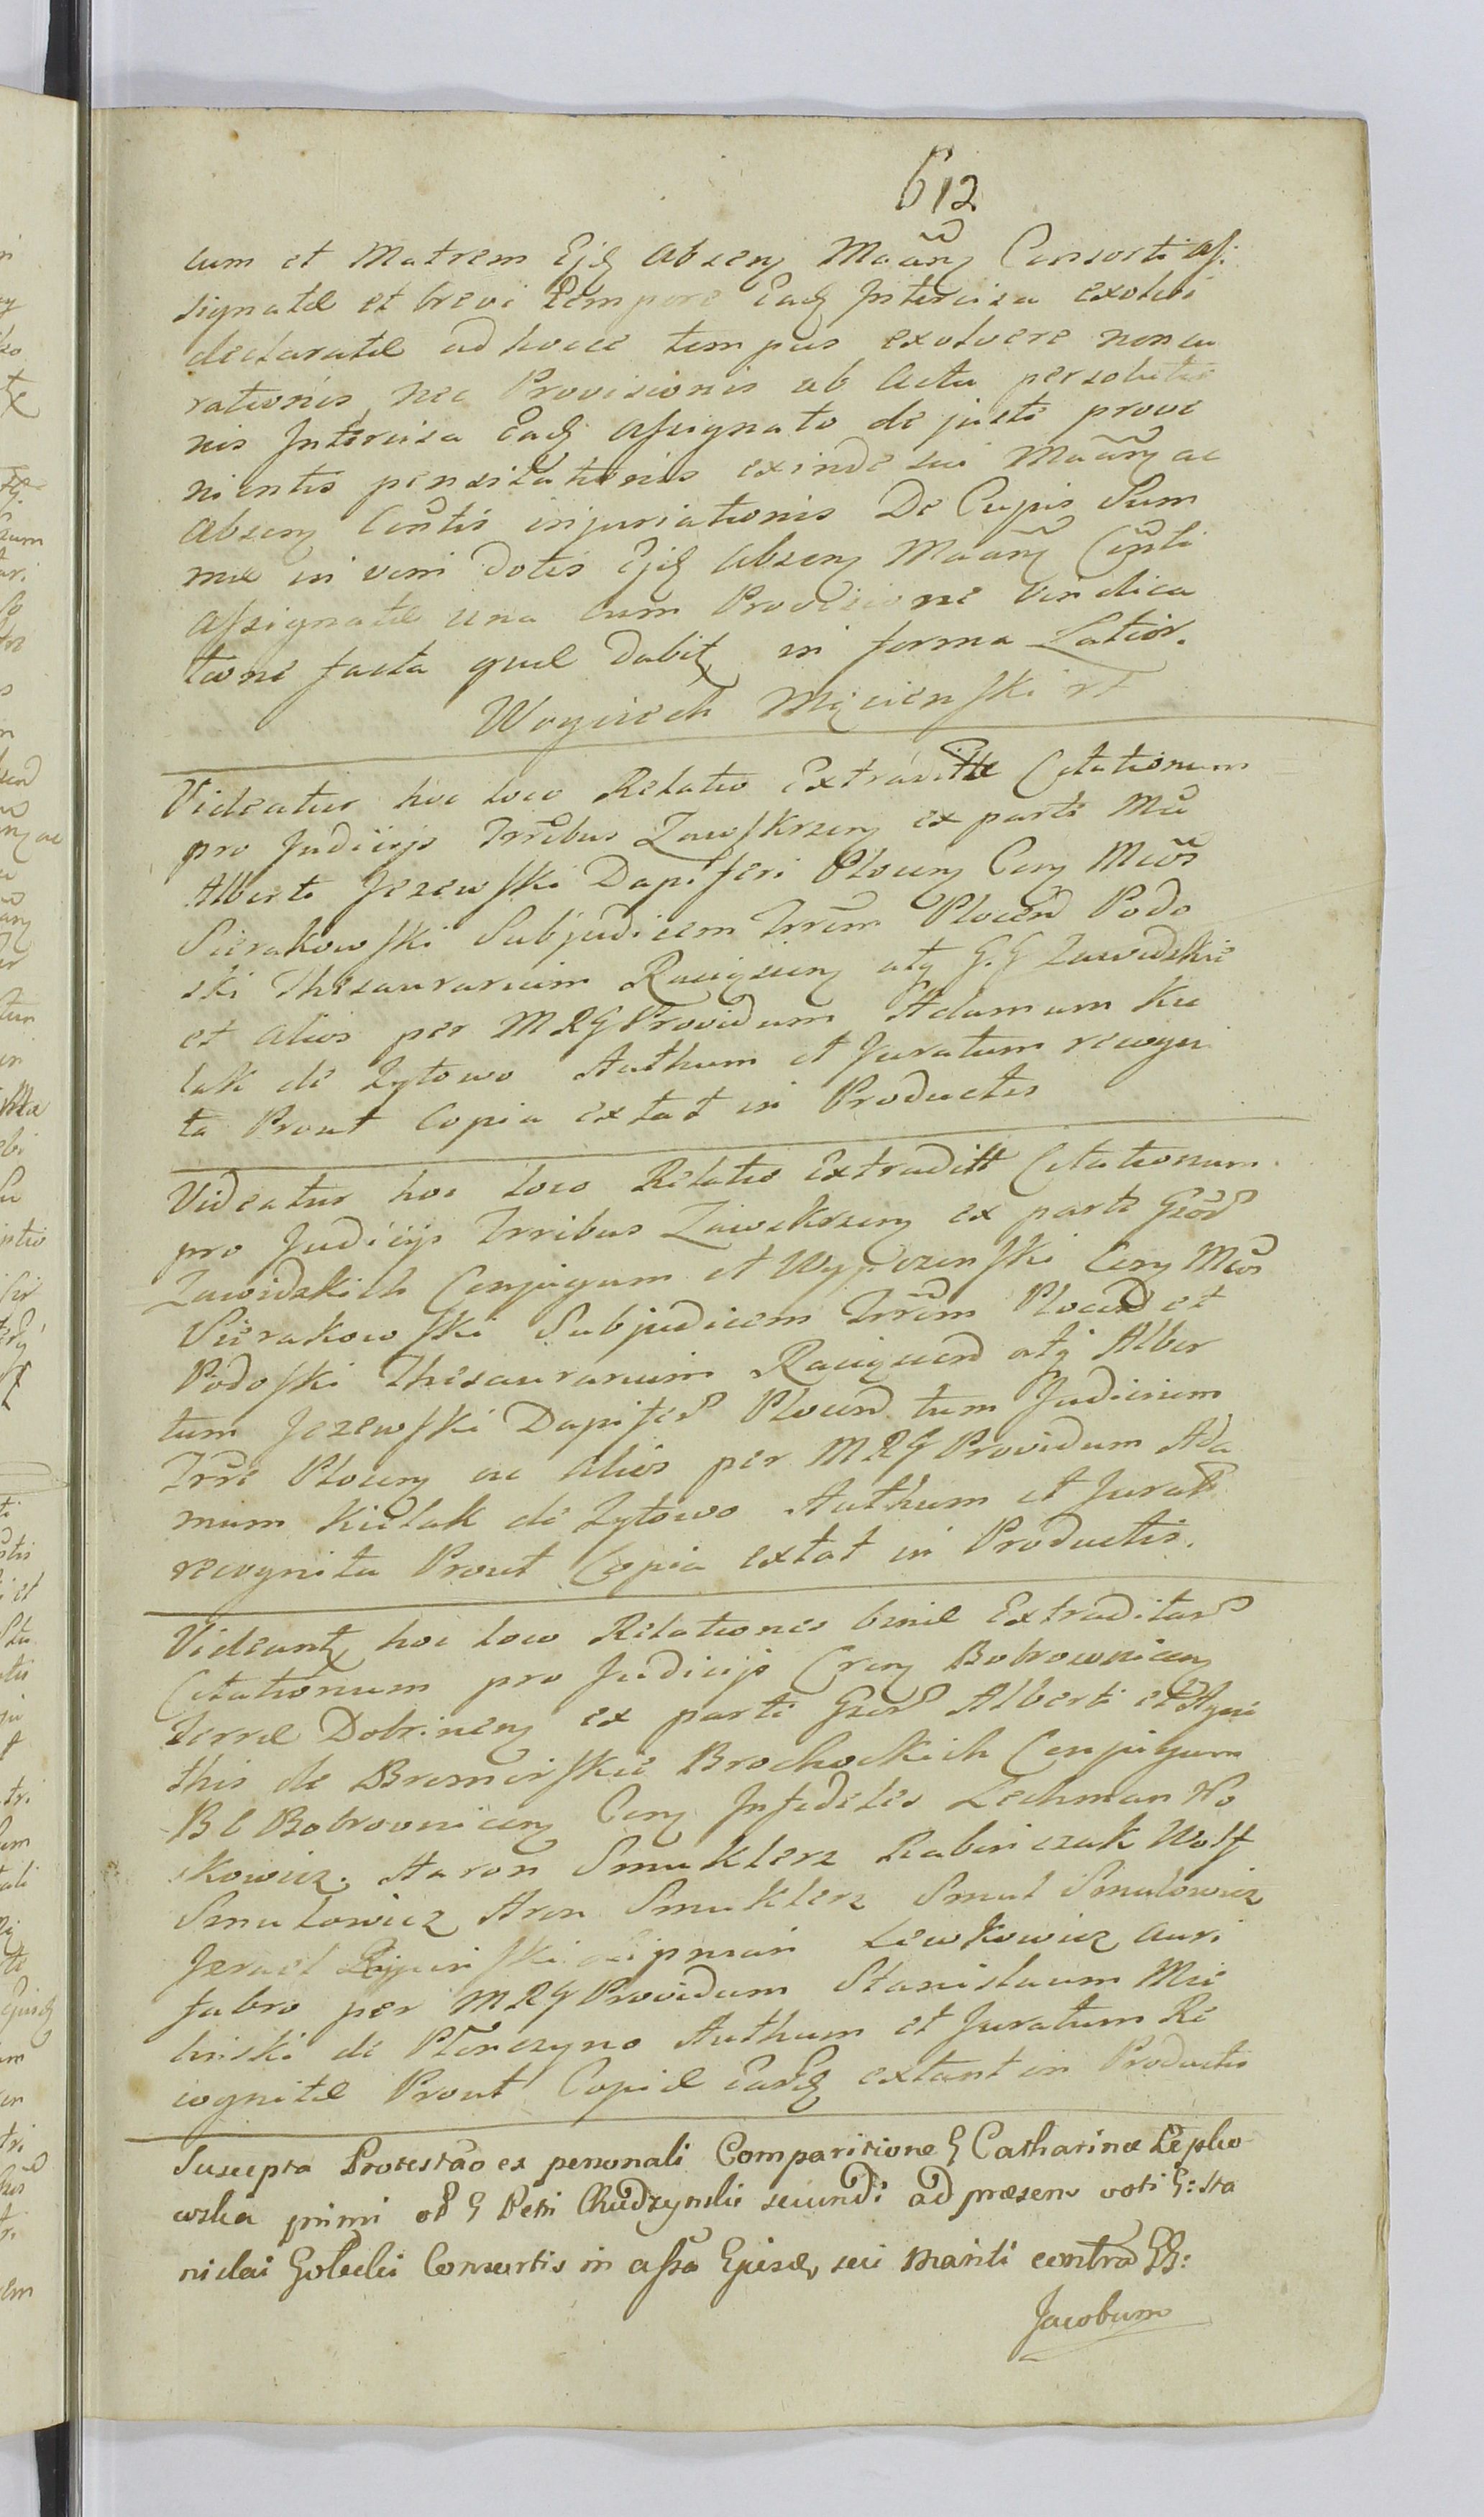 612
cum et Matrem Ejq absenq Maãnq Consorti as:
signatæ et brevi tempore Eadq Intercisa exolvi
declaratæ ad hocce tempus exolvere noncu
rationis, nec Provisionis ab Actu persolutio
nis Intercisa Eadq assignato de juste prove
nientis pensitationis exinde sui Maãnq ac
absenq Conttis injuriationis De Cujus Sum
mæ in vim Dotis Ejq absenq Maãnq Conti
assignatæ una cum Provisione Vindica
tione facta quæ Dabitq in forma Latior.
Woyciech Mięcienski
Videatur hoc loco Relatio Extraditæ Citationum
pro Judicijs Trribus Zawskrzenq ex parte Mci
Alberti Jezewski Dapiferi Plocenq Conq Mcos
Sierakowski Subjudicem Trrem Plocen Podo
ski Thesaurarium Raciązenq atq G.G Zawidzkie
et alios per MRG Providum Adamum Kie
lak de Zytowo Authum et Juratum recogni
ta Prout Copia extat in Productis
Videatur hoc loco Relatio Extraditt Citationum
pro Judicijs Trribus Zawskrzenq ex parte Gsor
Zawidzkich Conjugum et Wypczenski Conq Mcos
Sierakowski Subjudicem Trrem Plocen et
Podoski Thesaurarium Raciązen atq Alber
tum Jezewski Dapifer Plocen tum Judicium
Trre Plocenq ac alios per MRG Providum Ada
mum Kielak de Zytowo Authum et Jurat
recognita Prout Copia extat in Productis.
Videantq hoc loco Relationes binæ Extraditar
Citationum pro Judicijs Crenq Bobrownicenq
Terræ Dobrinenq ex parte Gsor Alberti et Agne
this de Bromirskie Brochockich Conjugum
B C Bobrovnicenq Conq Infideles Lechman No
skowicz. Haron Smuklerz Rabinczak Wolf
Smulowicz Aron Smuklerz Smul Smulowicz
Jzrael Lewkowicz auri
fabro per MRG Providum Stanislaum Mie
linski de Authum et Juratum Re
cognitæ Prout Copiæ Earq extant in Productis
Suscepta Protestão ex personali Comparitione G Catharinæ Lepko
wska primi G Petri Chudzynski secundi ad præsens voti G: Sta
nislai Golecki Consortis in assa Ejusd, sui Mariti contra GG:
Jacobum